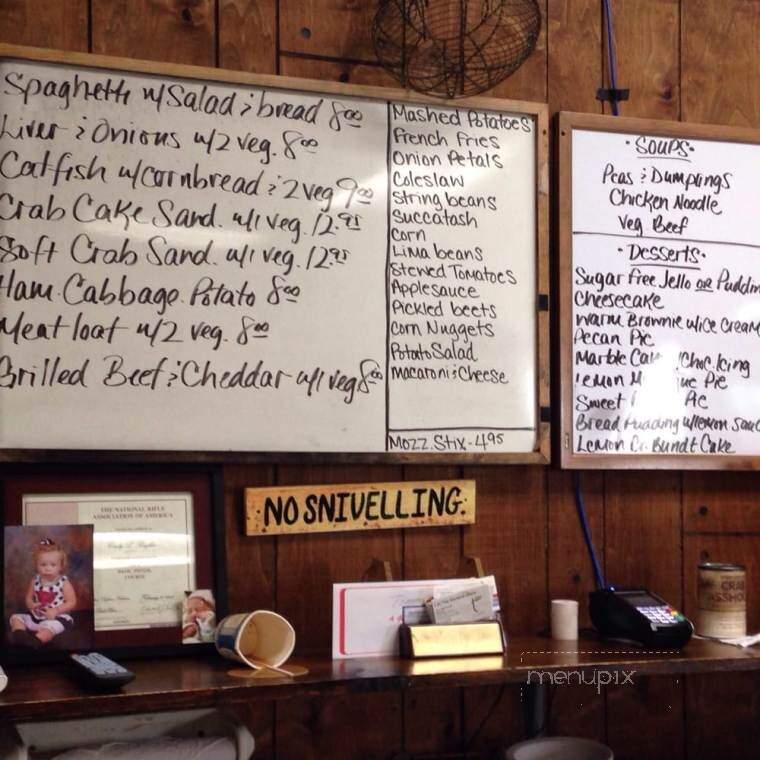 Spaghetti w/Salad & bread 8.00
Liver & Onions w/2 veg. 8.00
Catfish w/cornbread & 2 veg 9.00
Crab Cake Sand. w/1 veg. 12.95
Soft Crab Sand. w/1 veg. 12.95
Ham. Cabbage. Potato 8.00
Meatloaf w/2 veg. 8.00
Grilled Beef & Cheddar w/1 veg 8.00
Mashed Potatoes
French Fries
Onion Petals
Coleslaw
String beans
Succatash
Corn
Lima beans
Stewed Tomatoes
Applesauce
Pickled beets
Corn Nuggets
Potato Salad
Macaroni & Cheese
Mozz. Stix - 4.95
• Soups •
Peas & Dumplings
Chicken Noodle
Veg Beef
• Desserts •
Sugar Free Jello or Puddin
Cheesecake
Warm Brownie w/ice cream
Pecan Pie
Marble Cake Choc. Icing
Lemon Pie
Sweet Pie
Bread Pudding w/lemon Sau
Lemon Cr. Bundt Cake
NO SNIVELLING.
THE NATIONAL RIFLE
ASSOCIATION OF AMERICA
BASIC PISTOL
COURSE
CRAB
menupix